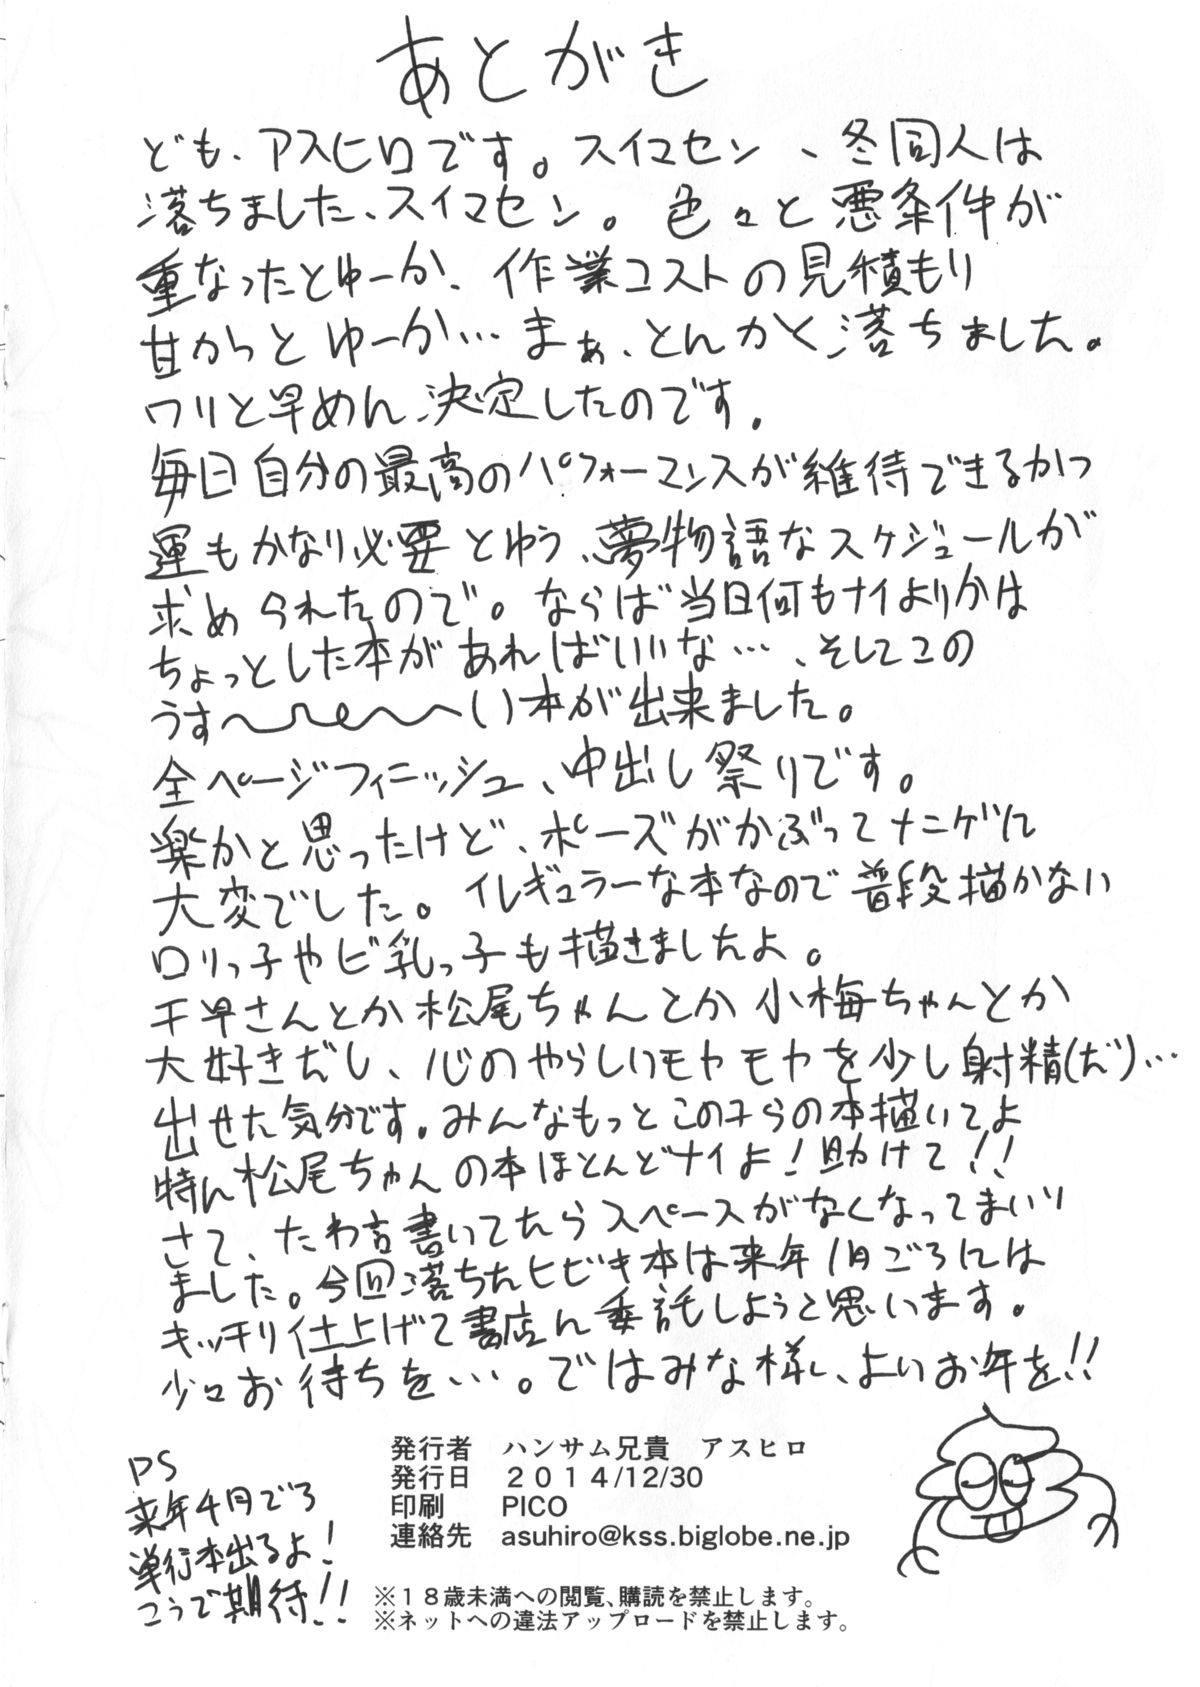 あとがき
ども、アスヒロです。スイマセン、冬同人は
落ちました、スイマセン。色々と悪条件が
重なったとゆーか、作業コストの見積もり
甘かっとゆーか…まぁ、とんかく落ちました。
ワリと早めん決定したのです。
毎日自分の最高のパフォーマンスが維待できるかつ
運もかなり必要とゆう、夢物語なスケジュールが
求められたので。ならば当日何もナイよりかは
ちょっとした本があればいいな…、そしてこの
うす〜〜〜い本が出来ました。
全ページフィニッシュ、中出し祭りです。
楽かと思ったけど、ポーズがかぶってナニゲに
大変でした。イレギュラーな本なので普段描かない
ロリっ子やビ乳っ子も描きましたよ。
千早さんとか松尾ちゃんとか小梅ちゃんとか
大好きだし、心のやらしいモヤモヤを少し射精(だ)…
出せた気分です。みんなもっとこの子らの本描いてよ
特ん松尾ちゃんの本ほとんどナイよ！助けて！！
さて、たわ言書いてたらスペースがなくなってまいり
ました。今回落ちたヒビキ本は来年1月ごろには
キッチリ仕上げて書店ん委託しようと思います。
少々お待ちを…。ではみな様、よいお年を!!
PS
来年4月ごろ
単行本出るよ！
こうご期待!!
発行者　ハンサム兄貴　アスヒロ
発行日　２０１４/12/30
印刷　PICO
連絡先　asuhiro@kss.biglobe.ne.jp
※１８歳未満への閲覧、購読を禁止します。
※ネットへの違法アップロードを禁止します。